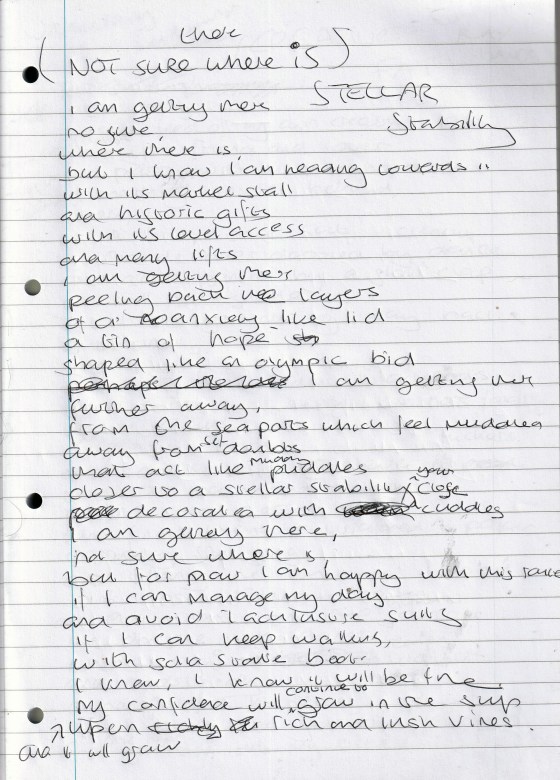 there
(NOT sure where is)
i am getting there
STELLAR
Stability
no sure,
where there is,
but I know I am heading towards it
with its market stall
and historic gifts
with its level access
and many lifts
i am getting there
peeling back layers
of a anxiety like lid
a tin of hope
shaped like an olympic bid
I am getting there
further away,
from the sea parts which feel muddled
away from self doubts
that act like muddy puddles
closer to a stellar stability, your close
decorated with cuddles
I am getting there,
not sure where is,
but for now I am happy with this
if I can manage my day
and avoid
if I can keep walking,
with
I know, I know it will be fine
my confidence will continue to grow in the
upon rich and lush vines.
and it will grow